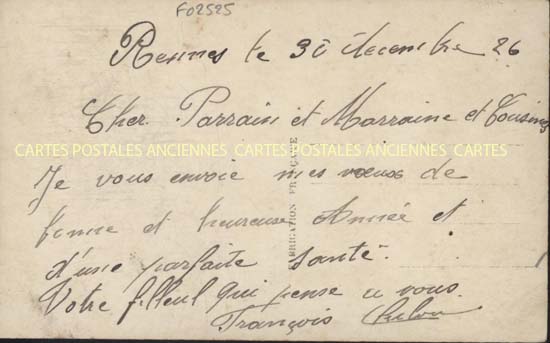 F02525
Rennes le 30 décembre 26
Cher Parrain et Marraine et Cousines
CARTES POSTALES ANCIENNES CARTES POSTALES ANCIENNES CARTES
Je vous envoie mes vœux de
bonne et heureuse Année et
d'une parfaite santé.
Votre filleul qui pense a vous.
François
FABRICATION FRANÇAISE